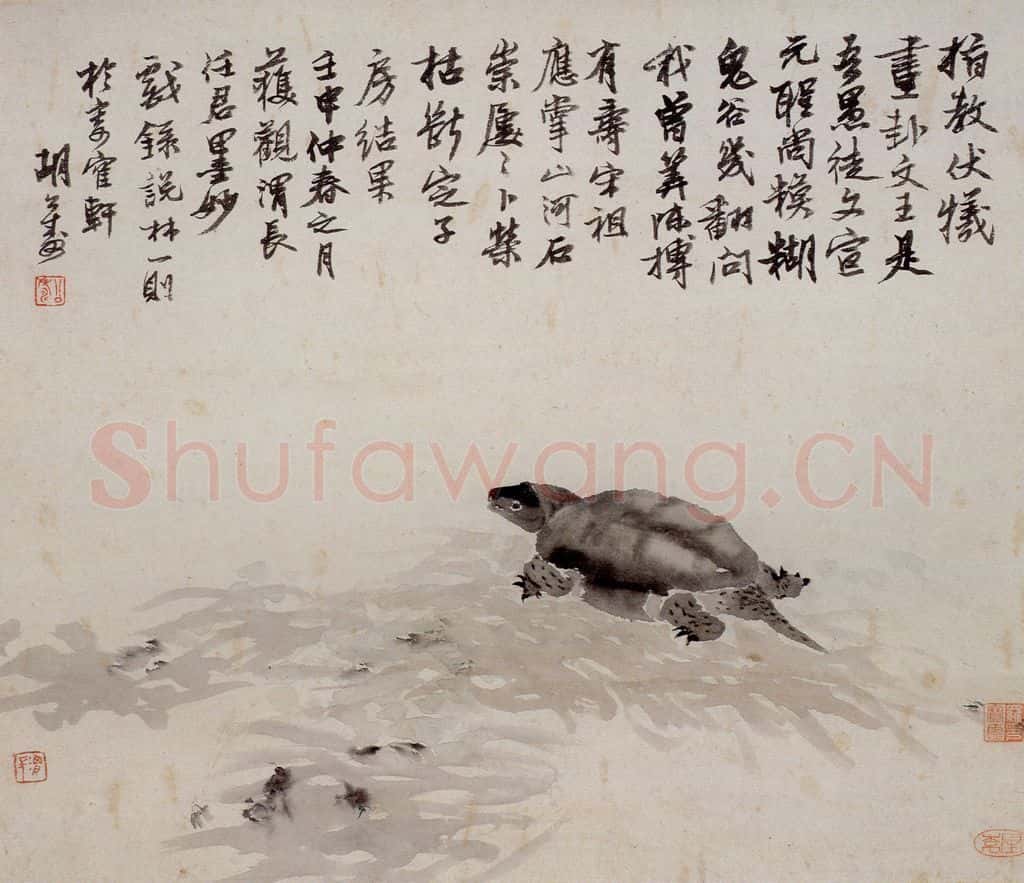 指教伏犧
畫卦文王是
吾愚徒文宣
元聖尚模糊
鬼谷幾翻問
我曾算陳摶
有壽宋祖
應掌山河石
崇屢〻卜榮
枯斷定子
房結果
壬申仲春之月
獲觀渭長
任君墨妙
戲錄說林一則
於軒
胡公壽
Shufawang.CN